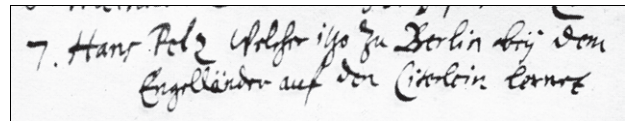 7. Hans Pelz Welcher izo zu Berlin beÿ dem
Engelländer auf den Citerlein lernet